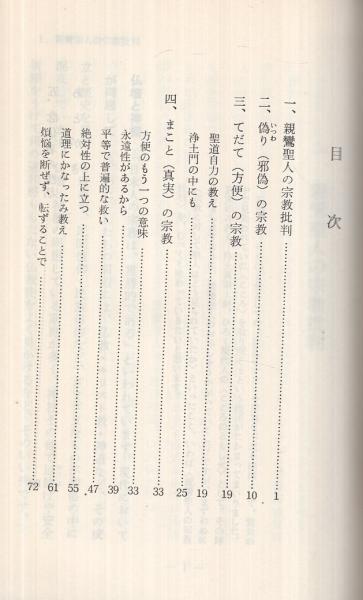 目次
一、親鸞聖人の宗教批判……1
二、偽り（邪偽）の宗教……10
いつわ
三、てだて（方便）の宗教……19
聖道自力の教え……19
浄土門の中にも……25
四、まこと（真実）の宗教……33
方便のもう一つの意味……33
永遠性があるから……39
平等で普遍的な救い……47
絶対性の上に立つ……55
道理にかなったみ教え……61
煩悩を断ぜず、転ずることで……72